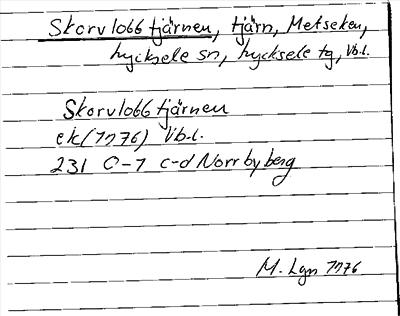 Skorvlobbtjärnen, tjärn, Metseken,
Lycksele sn, Lycksele tg, Vb.l.
Skorvlobbtjärnen
ek (1976) Vb.l.
231 C-7 c-d Norrbyberg
M. Lgn 1976